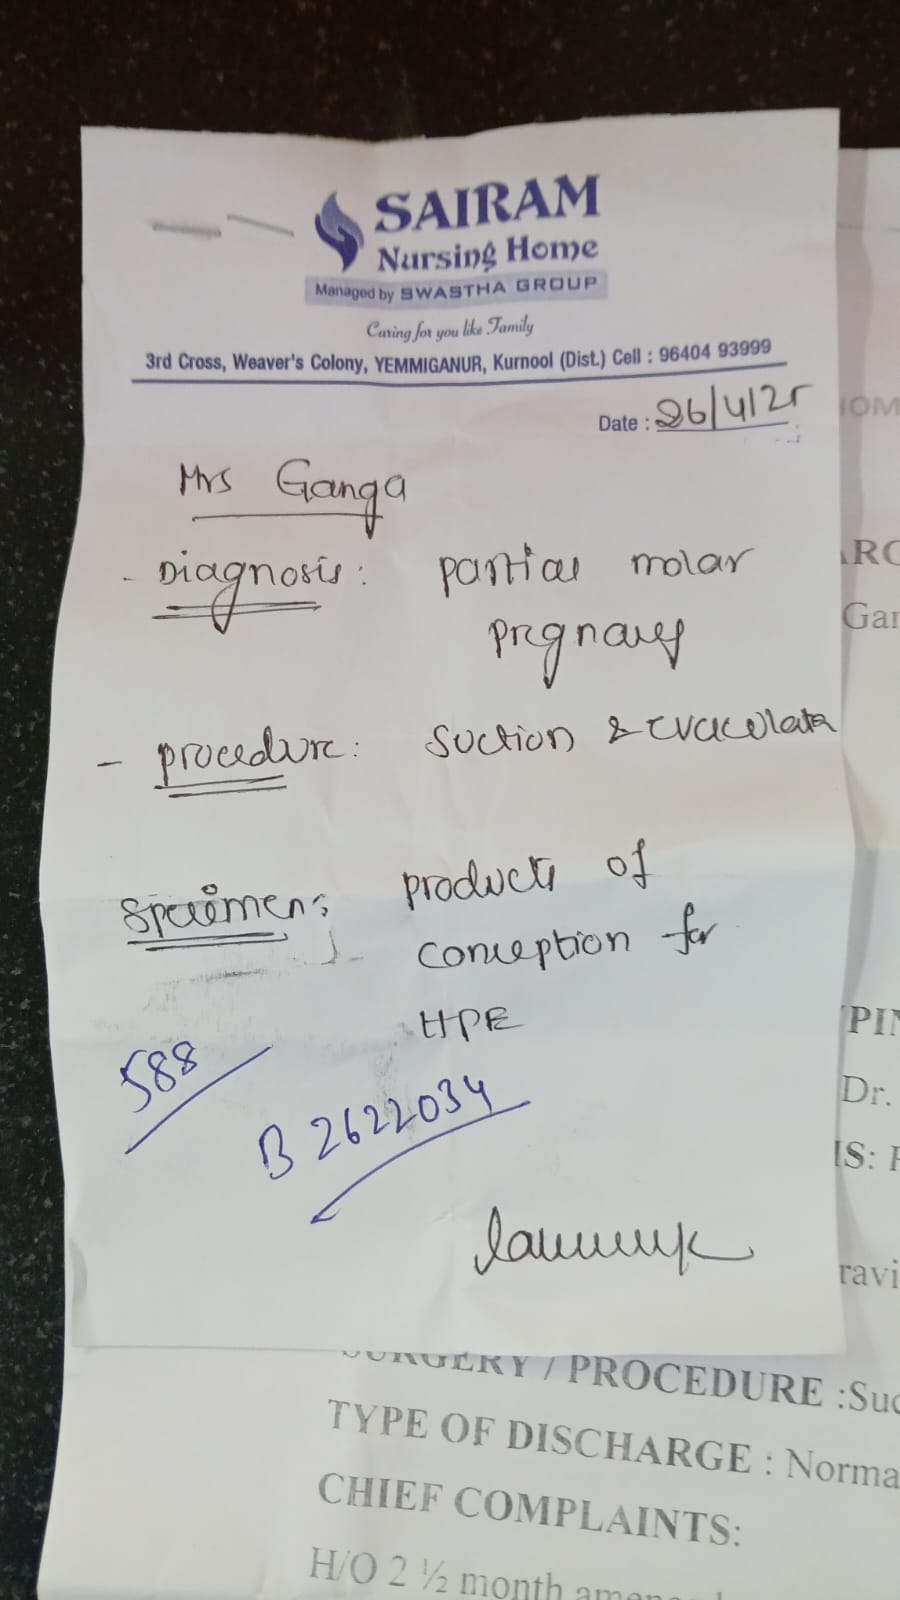 SAIRAM
Nursing Home
Managed by SWASTHA GROUP
Caring for you like Family
3rd Cross, Weaver's Colony, YEMMIGANUR, Kurnool (Dist.) Cell : 96404 93999
Date : 26/4/25
Mrs Ganga
- Diagnosis : partial molar
pregnancy
- procedure : suction & evacuation
specimen : products of
conception for
HPE
588
B 2622034
HOM
ARG
Gan
PIN
Dr.
IS: F
ravi
SURGERY / PROCEDURE :Suc
TYPE OF DISCHARGE : Norma
CHIEF COMPLAINTS:
H/O 2 ½ month